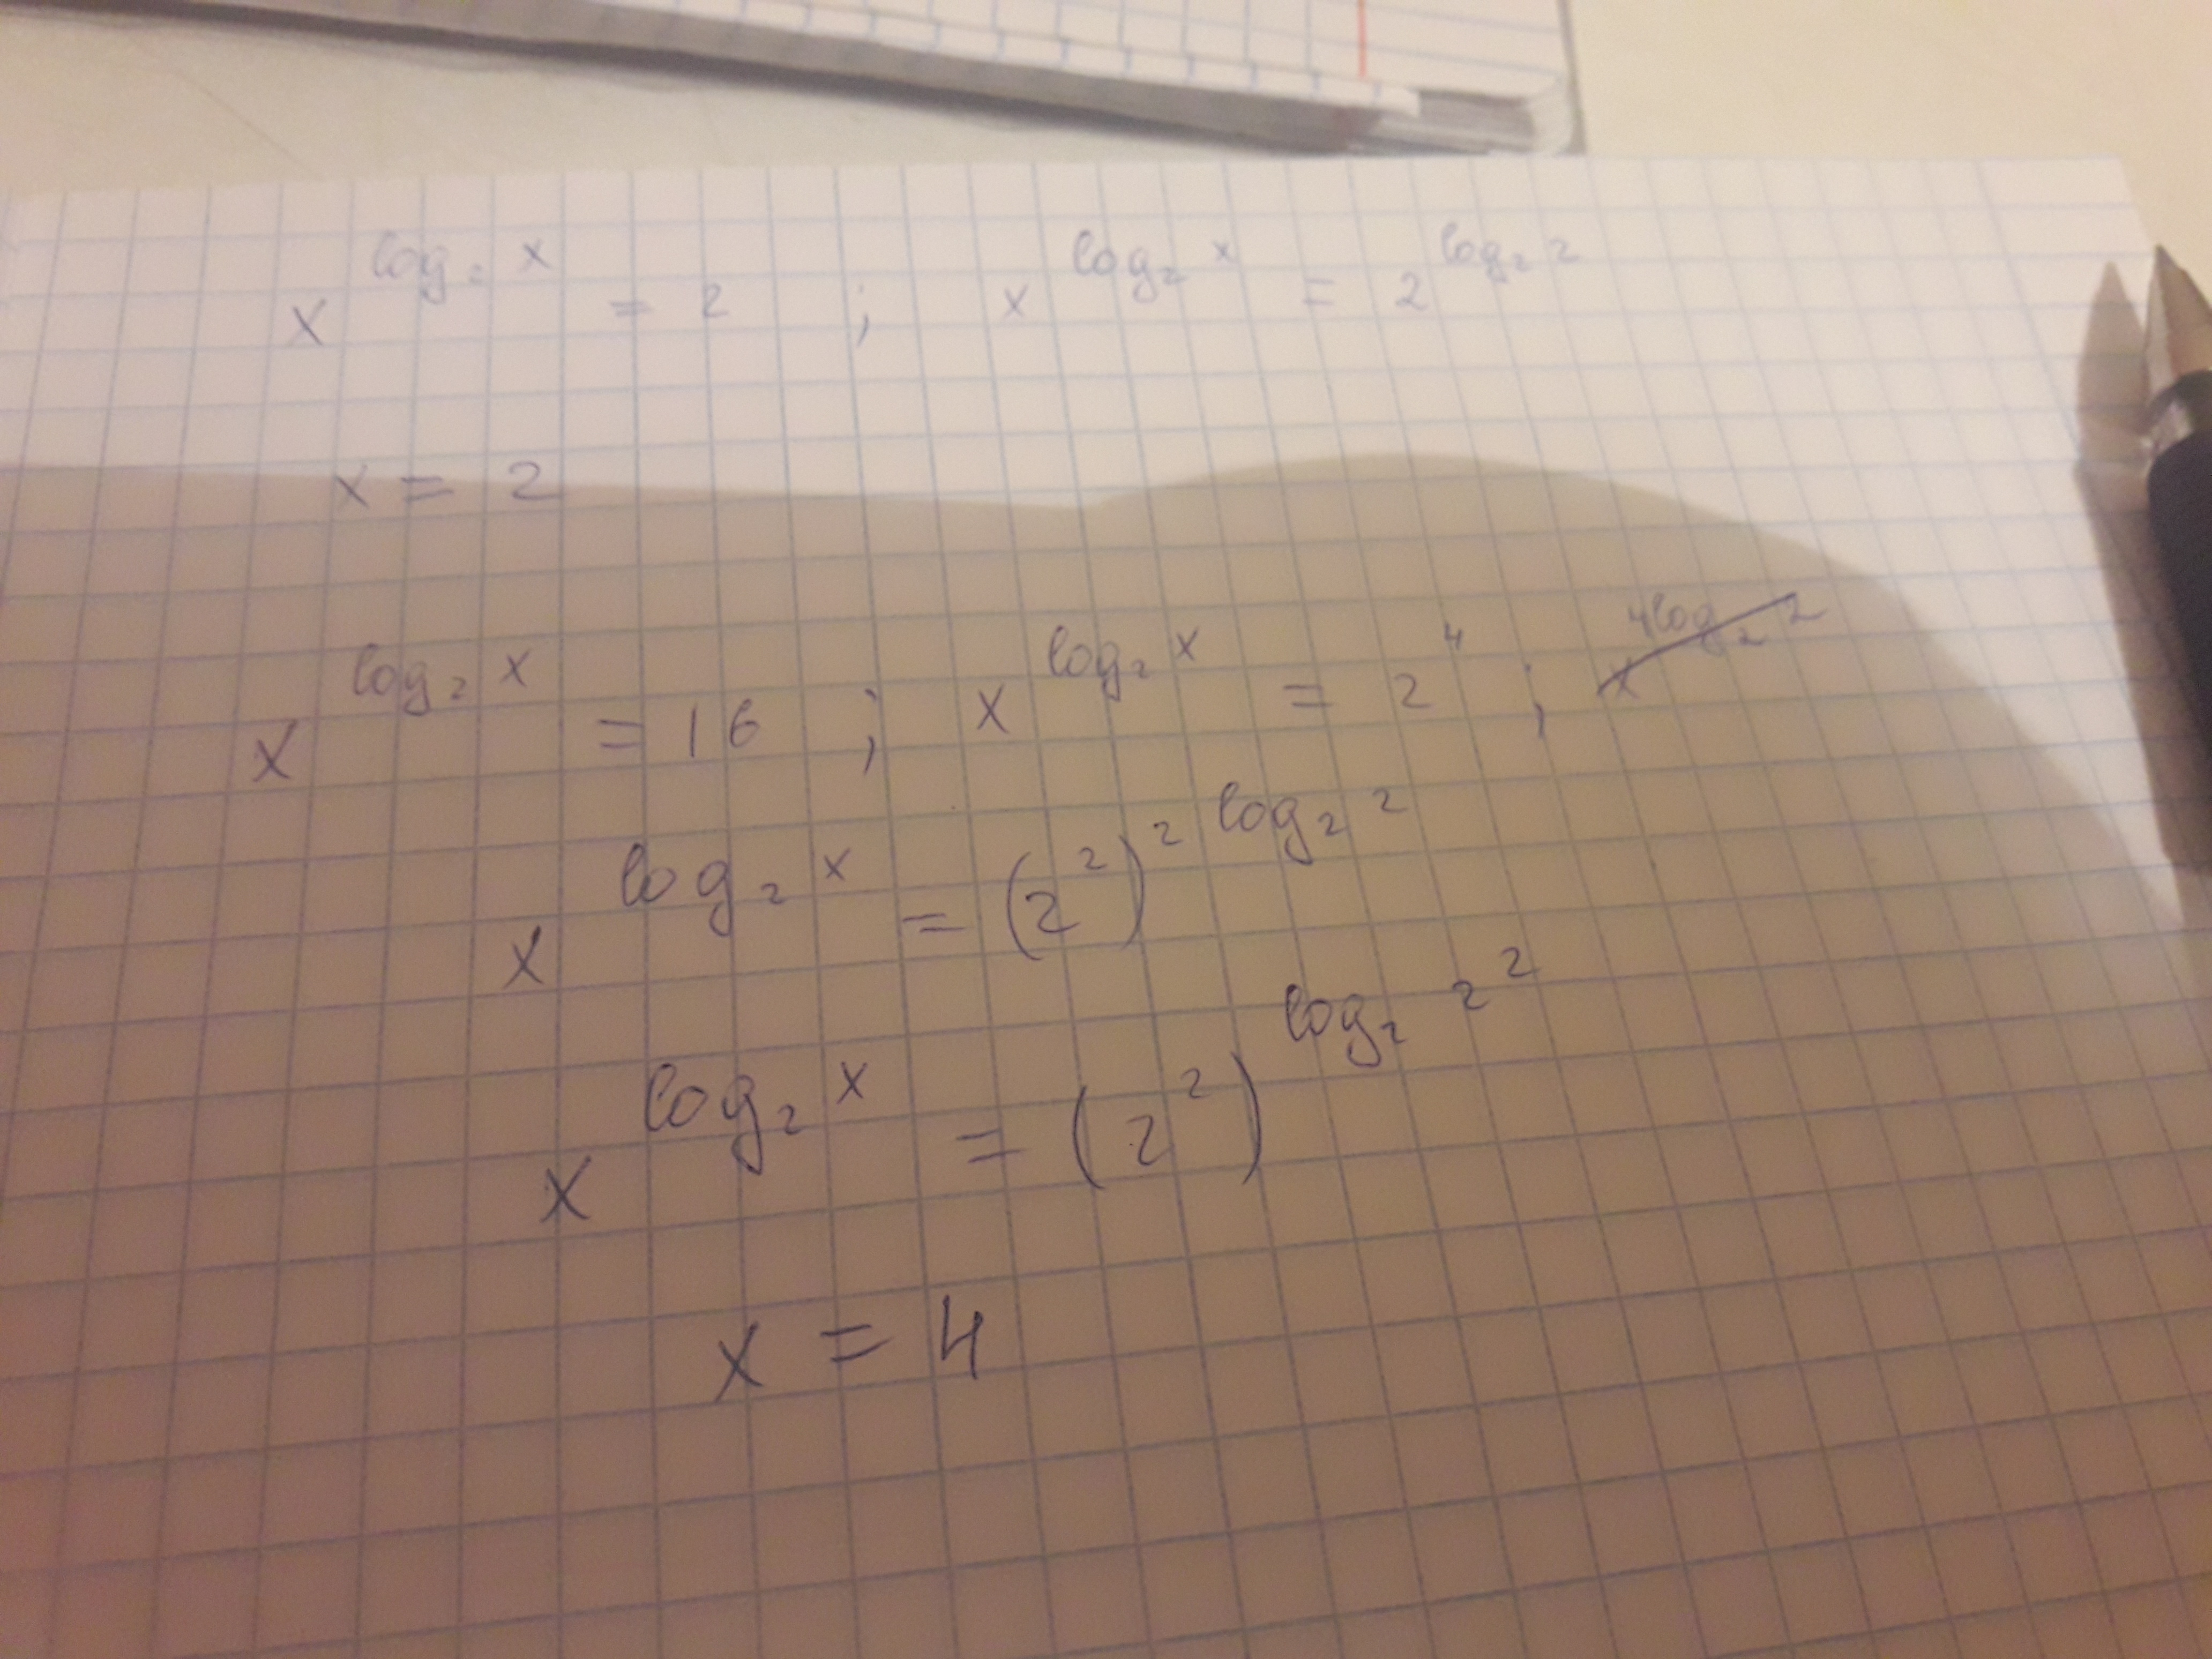 x^(log₂ x) = 2 ; x^(log₂ x) = 2^(log₂ 2)
x = 2
x^(log₂ x) = 16 ; x^(log₂ x) = 2^4 ; x^(4log₂ 2)
x^(log₂ x) = (2^2)^(2 log₂ 2)
x^(log₂ x) = (2^2)^(log₂ 2^2)
x = 4